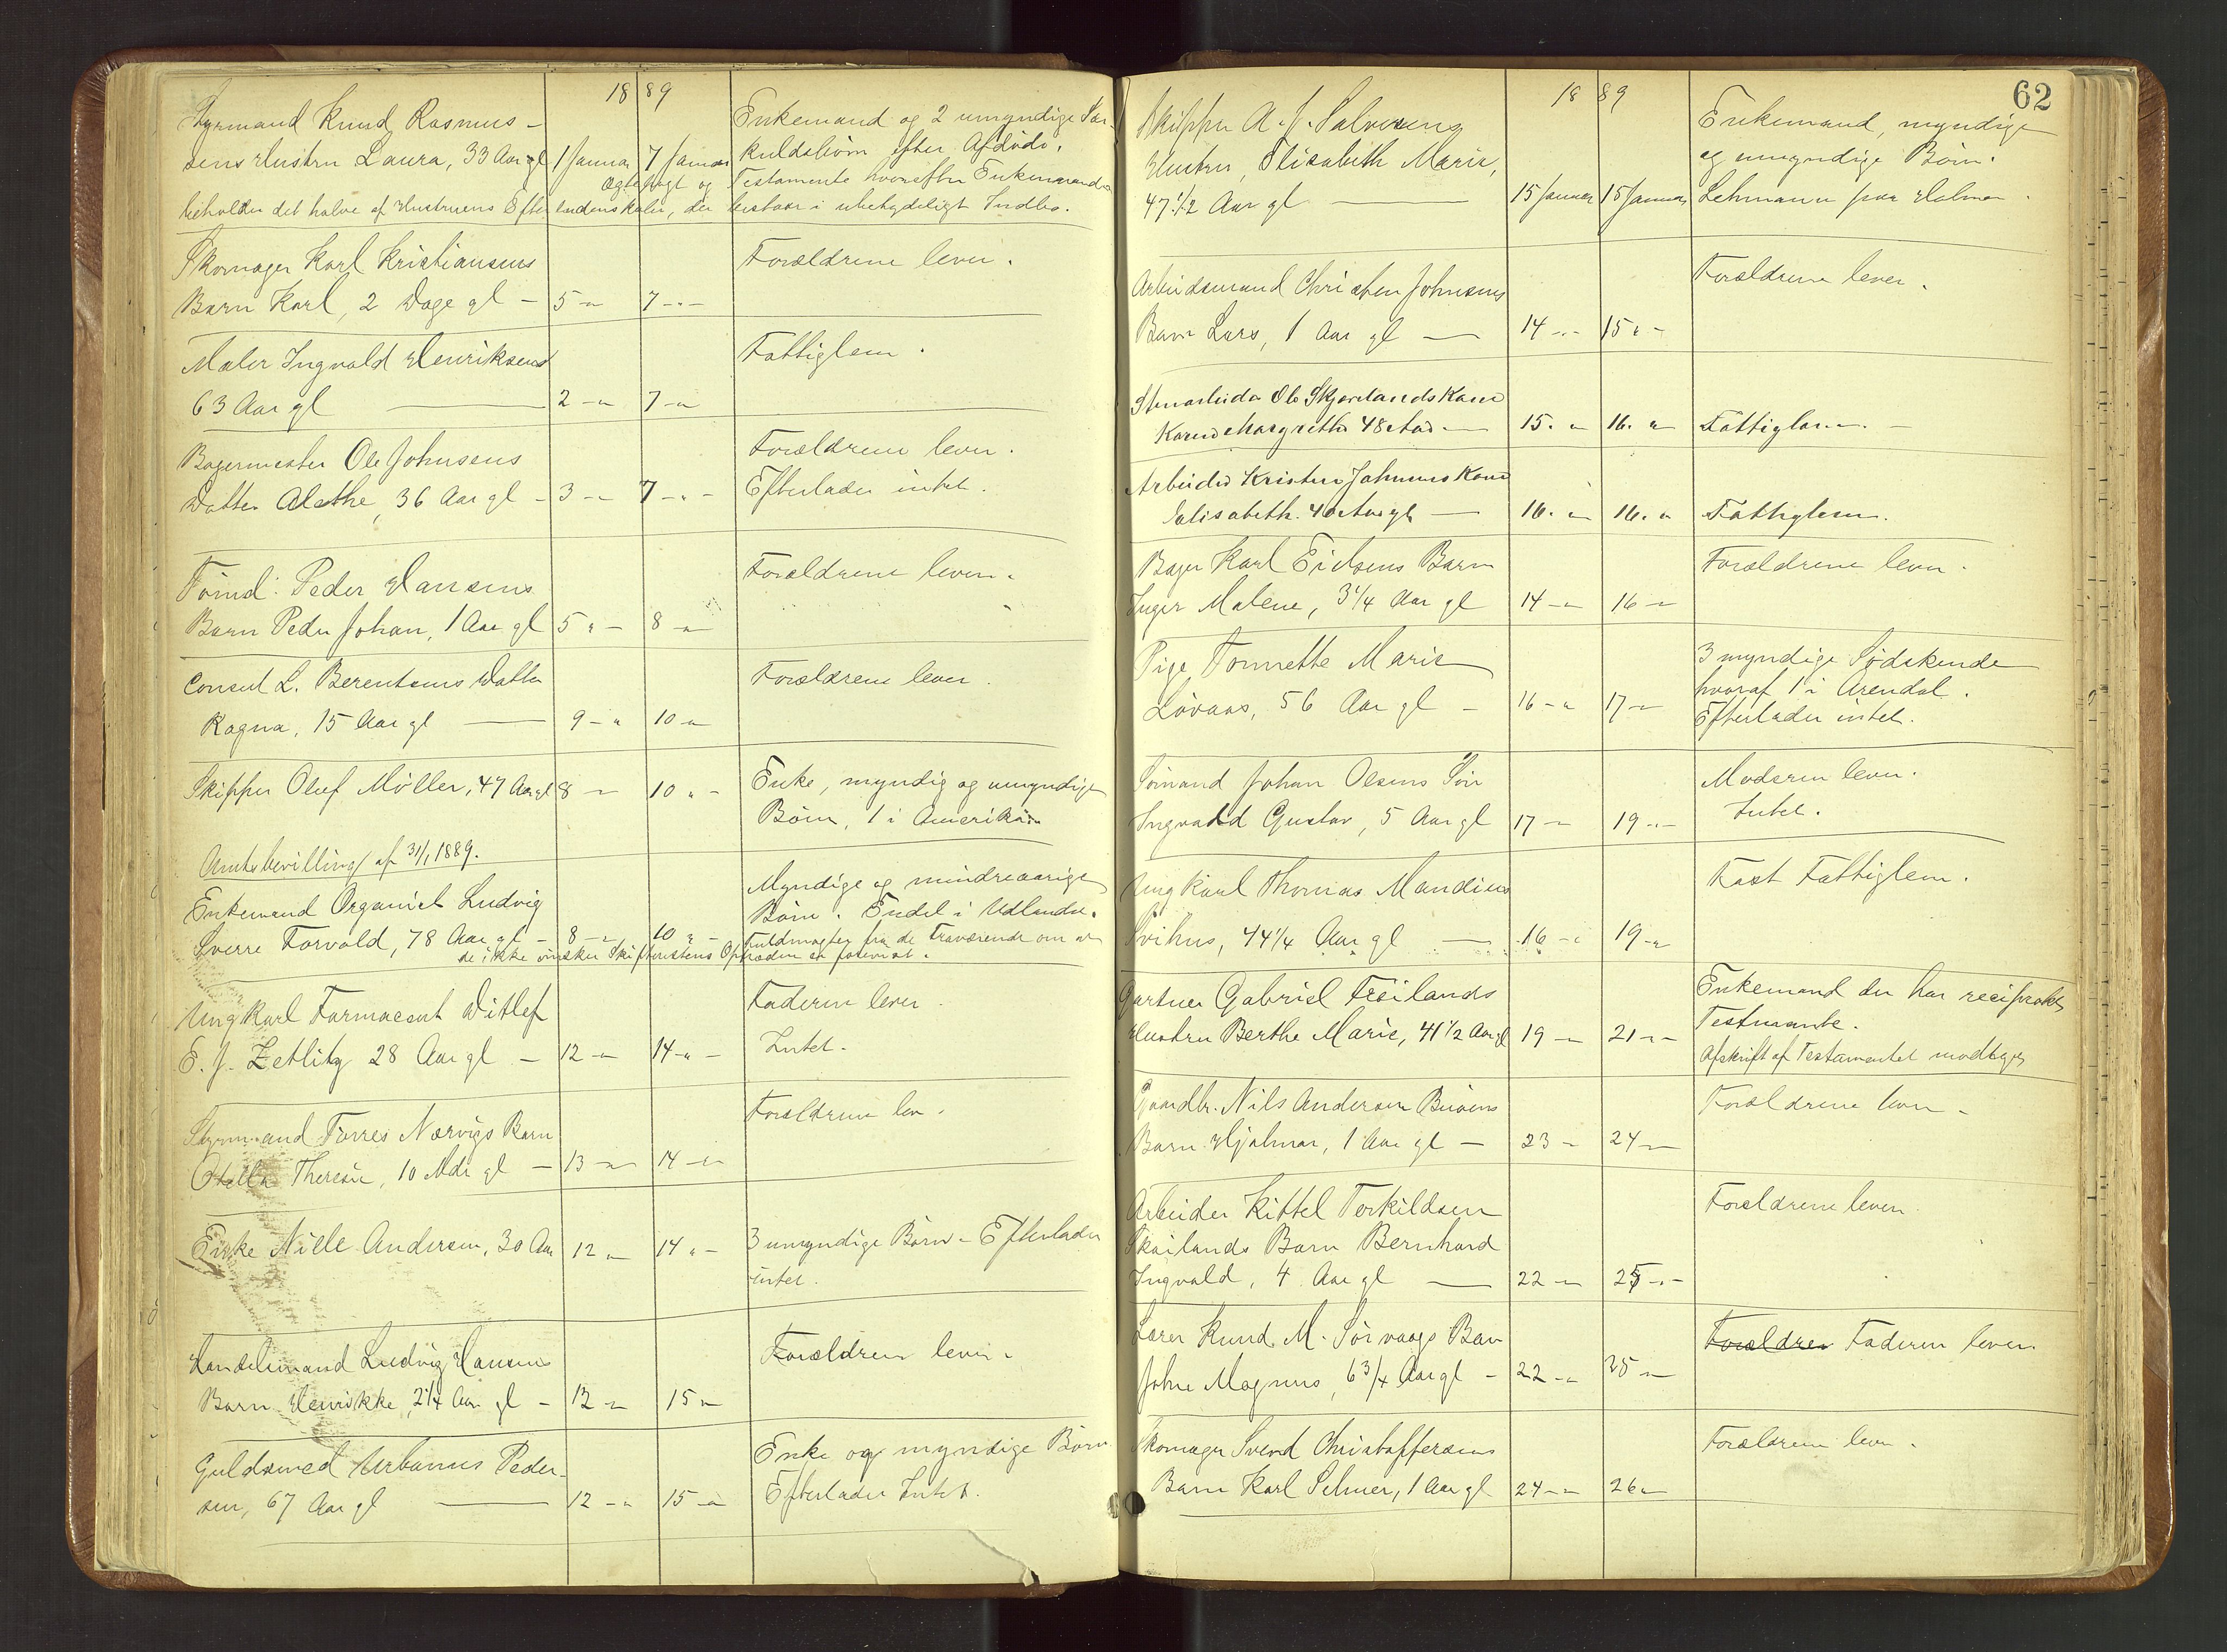 18 89
Styrmand Knud Rasmus-
sens Hustru Laura, 33 Aar gl 1 Januar 7 Januar
Enkemand og 2 umyndige Sær-
kuldsbørn efter Afdøde.
Ægtepagt og Testamente hvorefter Enkemanden
beholder det halve af Hustruens Efterladenskaber, der bestaar i ubetydeligt Indbo.
Skomager Karl Kristiansens
Barn Karl, 2 Dage gl – 5 – " 7 – " –
Forældrene lever.
Maler Ingvald Henriksen
63 Aar gl 2 – " 7 – "
Fattiglem.
Bagermester Ole Johnsens
Datter Alethe, 36 Aar gl – 3 – " 7 – " –
Forældrene lever.
Efterlader intet.
Tømd: Peder Hansens
Barn Peder Johan, 1 Aar gl 5 " – 8 – "
Forældrene lever.
Consul L. Berentsens Datter
Ragna, 15 Aar gl 9 – " 10 – "
Forældrene lever.
Skipper Oluf Møller, 47 Aar gl 8 – " 10 " –
Enke, myndig og umyndige
Børn, 1 i Amerika
Amtsbevilling af 31/1 1889.
Enkemand Organist Ludvig
Sverre Torvald, 78 Aar gl – 8 – " 10 " –
Myndige og mindreaarige
Børn. Endel i Udlandet.
Fuldmagter fra de Fraværende om at
de ikke ønsker Skifterettens Optræden er forevist.
Ungkarl Farmaceut Ditlef
E. J. Zetlitz 28 Aar gl – 12 – " 14 – " –
Faderen lever
Intet.
Styrmand Torres Nærvigs Barn
Otelia Theresie, 10 Mdr gl – 13 – " 14 – "
Forældrene lev.
Enke Nille Andersen, 30 Aar 12 " 14 " –
3 umyndige Børn – Efterlader
intet.
Handelsmand Ludvig Hansens
Barn Henrikke, 2 1/4 Aar gl – 12 – " 15 – "
Forældren lever.
Guldsmed Urbanus Peder-
sen, 67 Aar gl 12 – " 15 – "
Enke og myndige Børn
Efterlader Intet.
62
18 89
Skipper A. J. Salvesens
Hustru, Elisabeth Marie,
47 1/2 Aar gl 15 Januar 15 Januar
Enkemand, myndige
og umyndige Børn.
Lehmann paa Holmen.
Arbeidsmand Christen Johnsens
Barn Lars, 1 Aar gl 14 – " – 15 " –
Forældrene lever.
Stenarbeider Ole Skjørelands Kone
Karen Margrethe 48 Aar – 15. " 16. "
Fattiglem. –
Arbeider Kristen Johnsens Kone
Elisabeth. 40 Aar gl – 16. " 16. "
Fattiglem.
Bager Karl Eielsens Barn
Inger Malene, 3 1/4 Aar gl 14 – " 16 – "
Forældrene lever.
Pige Tonnette Marie
Løvaas, 56 Aar gl – 16 – " 17 – "
3 myndige Sødskende
hvoraf 1 i Arendal.
Efterlader intet.
Sømand Johan Olsens Søn
Ingvald Gustav, 5 Aar gl 17 – " 19 – " –
Moderen lever.
Intet.
Ungkarl Thomas Mandius
Svihus, 44 1/4 Aar gl 16 – " 19 – "
Fast Fattiglem.
Gartner Gabriel Treilands
Hustru Berthe Marie, 41 1/2 Aar gl 19 – " 21 – " –
Enkemand der har reciprokt
Testmante.
Afskrift af Testamentet modtaget
Gaardbr. Nils Andersen Buøens
Barn Hjalmar, 1 Aar gl – 23 – " 24 – "
Forældrene lever –
Arbeider Kittel Terkildsen
Skailands Barn Bernhard
Ingvald, 4 Aar gl 22 – " 25 – " –
Forældrene lever.
Lærer Knud M. Sørvaags Barn
Johne Magnus, 6 3/4 Aar gl – 22 – " 25 – "
Forældren Faderen lever
Skomager Svend Christoffersens
Barn Karl Selmer, 1 Aar gl 24 – " 26 – "
Forældrene lever.